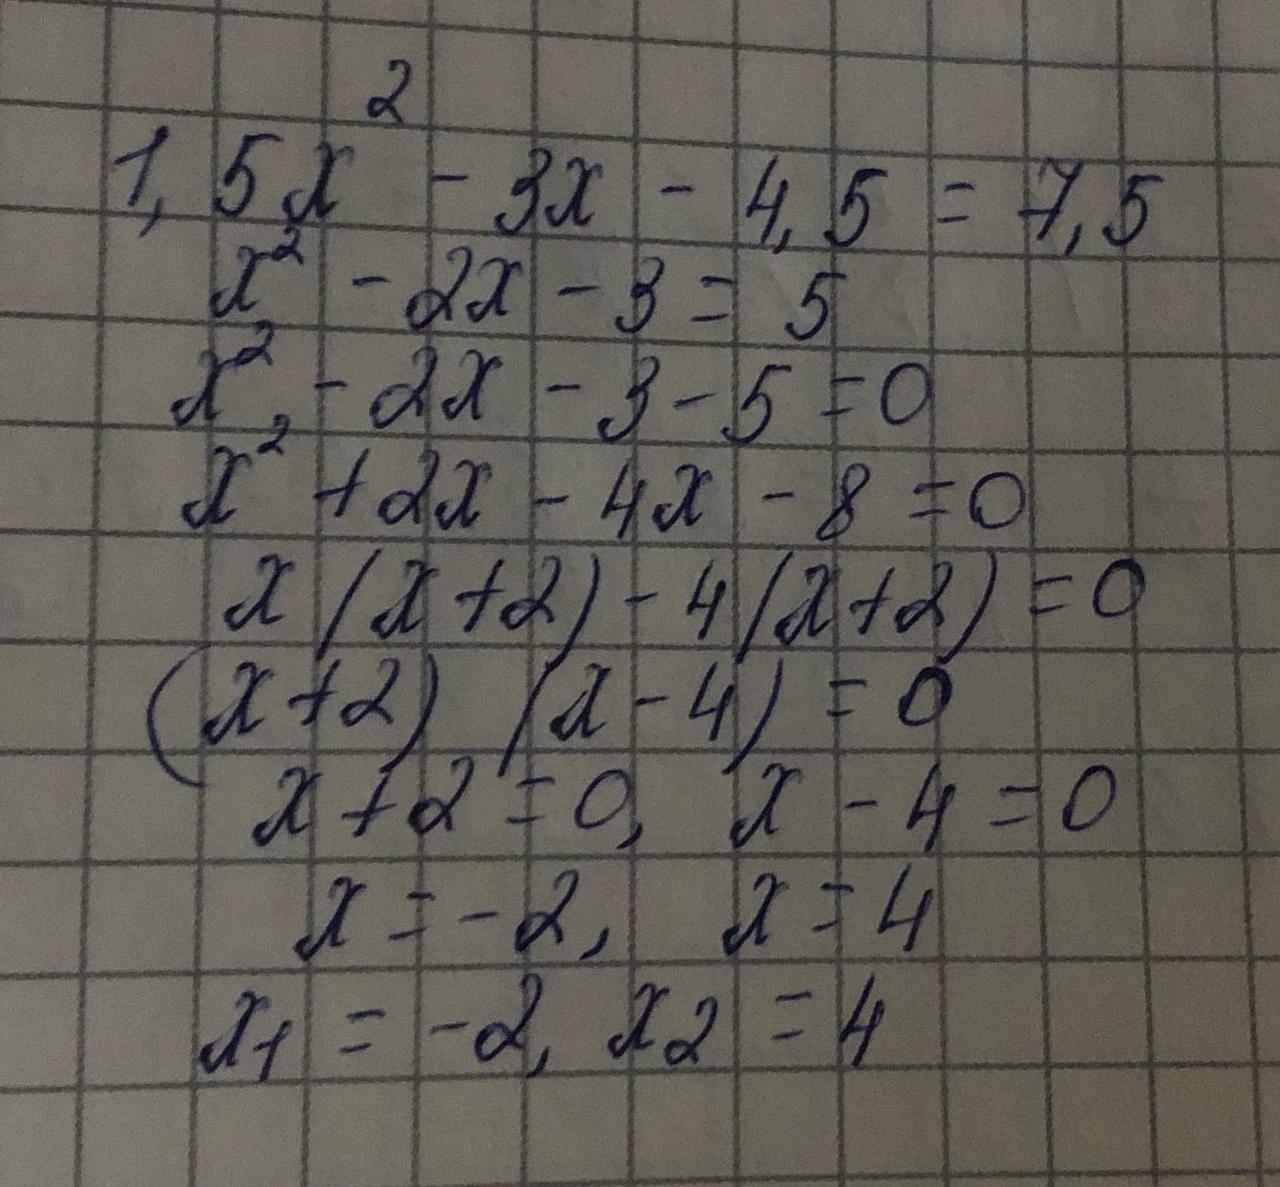 1,5x² - 3x - 4,5 = 7,5
x² - 2x - 3 = 5
x² - 2x - 3 - 5 = 0
x² + 2x - 4x - 8 = 0
x(x+2) - 4(x+2) = 0
(x+2) (x-4) = 0
x + 2 = 0, x - 4 = 0
x = -2, x = 4
x₁ = -2, x₂ = 4